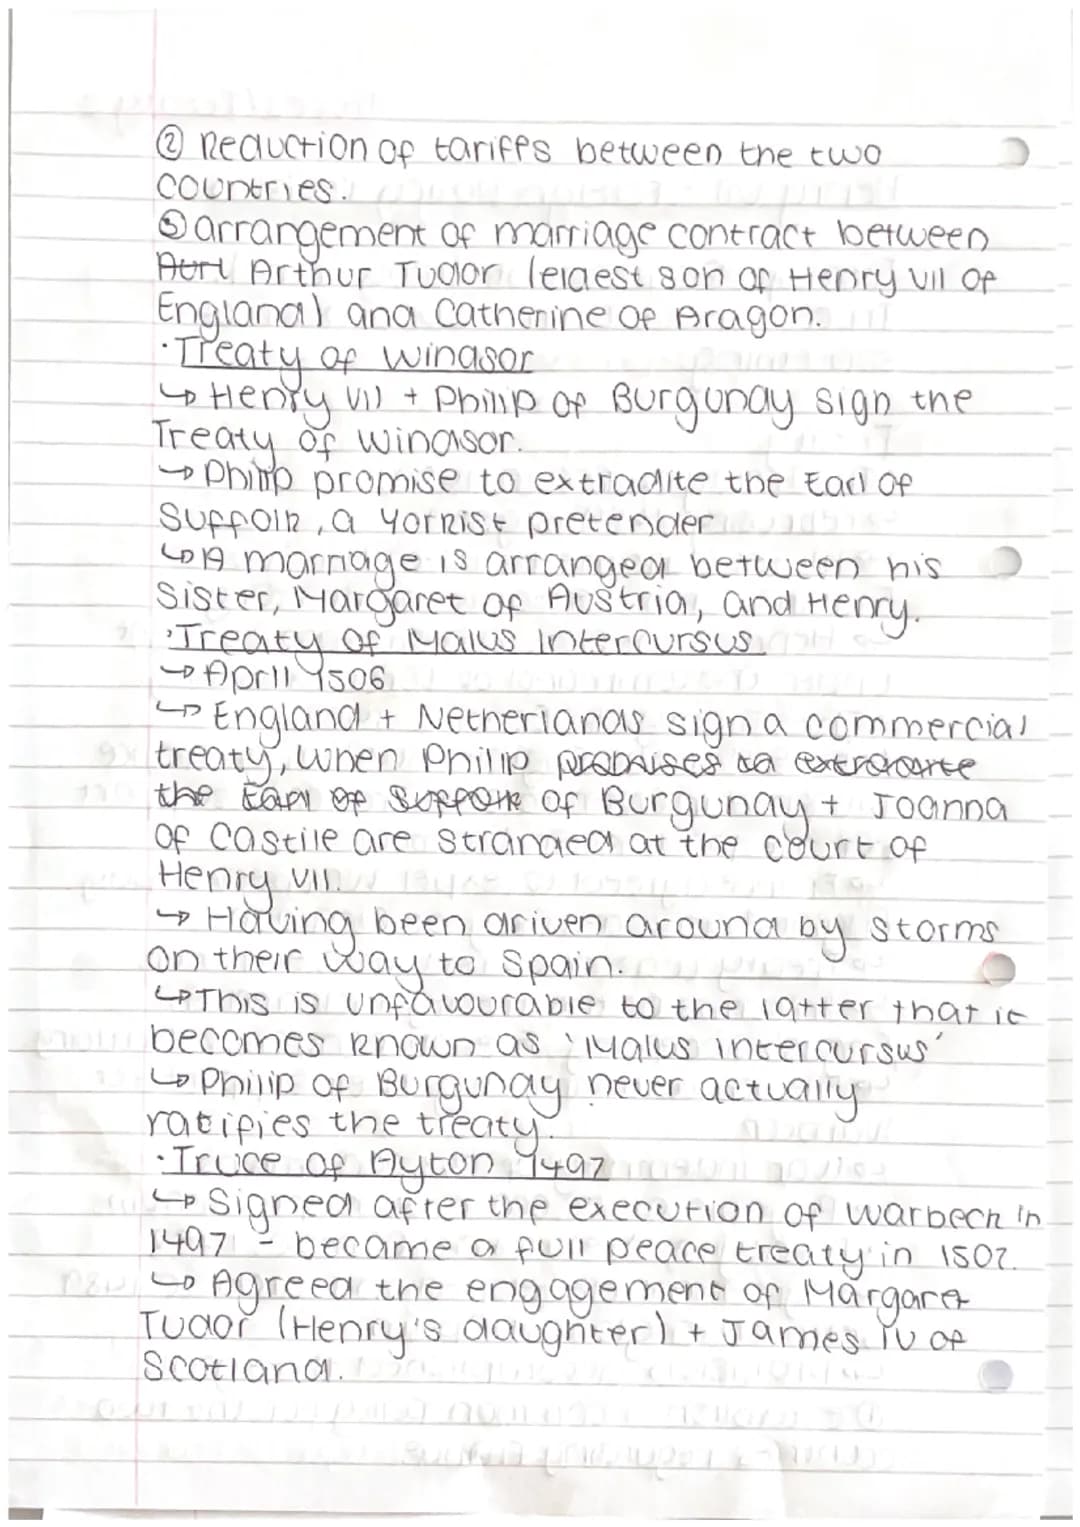 ② Reduction of tariffs between the two
countries.
③ arrangement of marriage contract between
Aurt Arthur Tudor (eldest son of Henry VII of
England) and Catherine of Aragon.
· Treaty of Windsor
↳ Henry VII + Philip of Burgundy sign the
Treaty of Windsor.
↳ Philip promise to extradite the Earl of
Suffolk, a Yorkist pretender
↳ A marriage is arranged between his
Sister, Margaret of Austria, and Henry.
· Treaty of Malus Intercursus
↳ April 1506
↳ England + Netherlands sign a commercial
treaty, when Philip promises to extradite
the Earl of Suffolk of Burgundy + Joanna
of Castile are stranded at the court of
Henry VII.
↳ Having been driven around by storms
on their way to Spain.
↳ This is unfavourable to the latter that it
becomes known as 'Malus intercursus'
↳ Philip of Burgundy never actually
ratifies the treaty.
· Truce of Ayton 1497
↳ Signed after the execution of Warbeck in
1497 - became a full peace treaty in 1502.
↳ Agreed the engagement of Margaret
Tudor (Henry's daughter) + James IV of
Scotland.